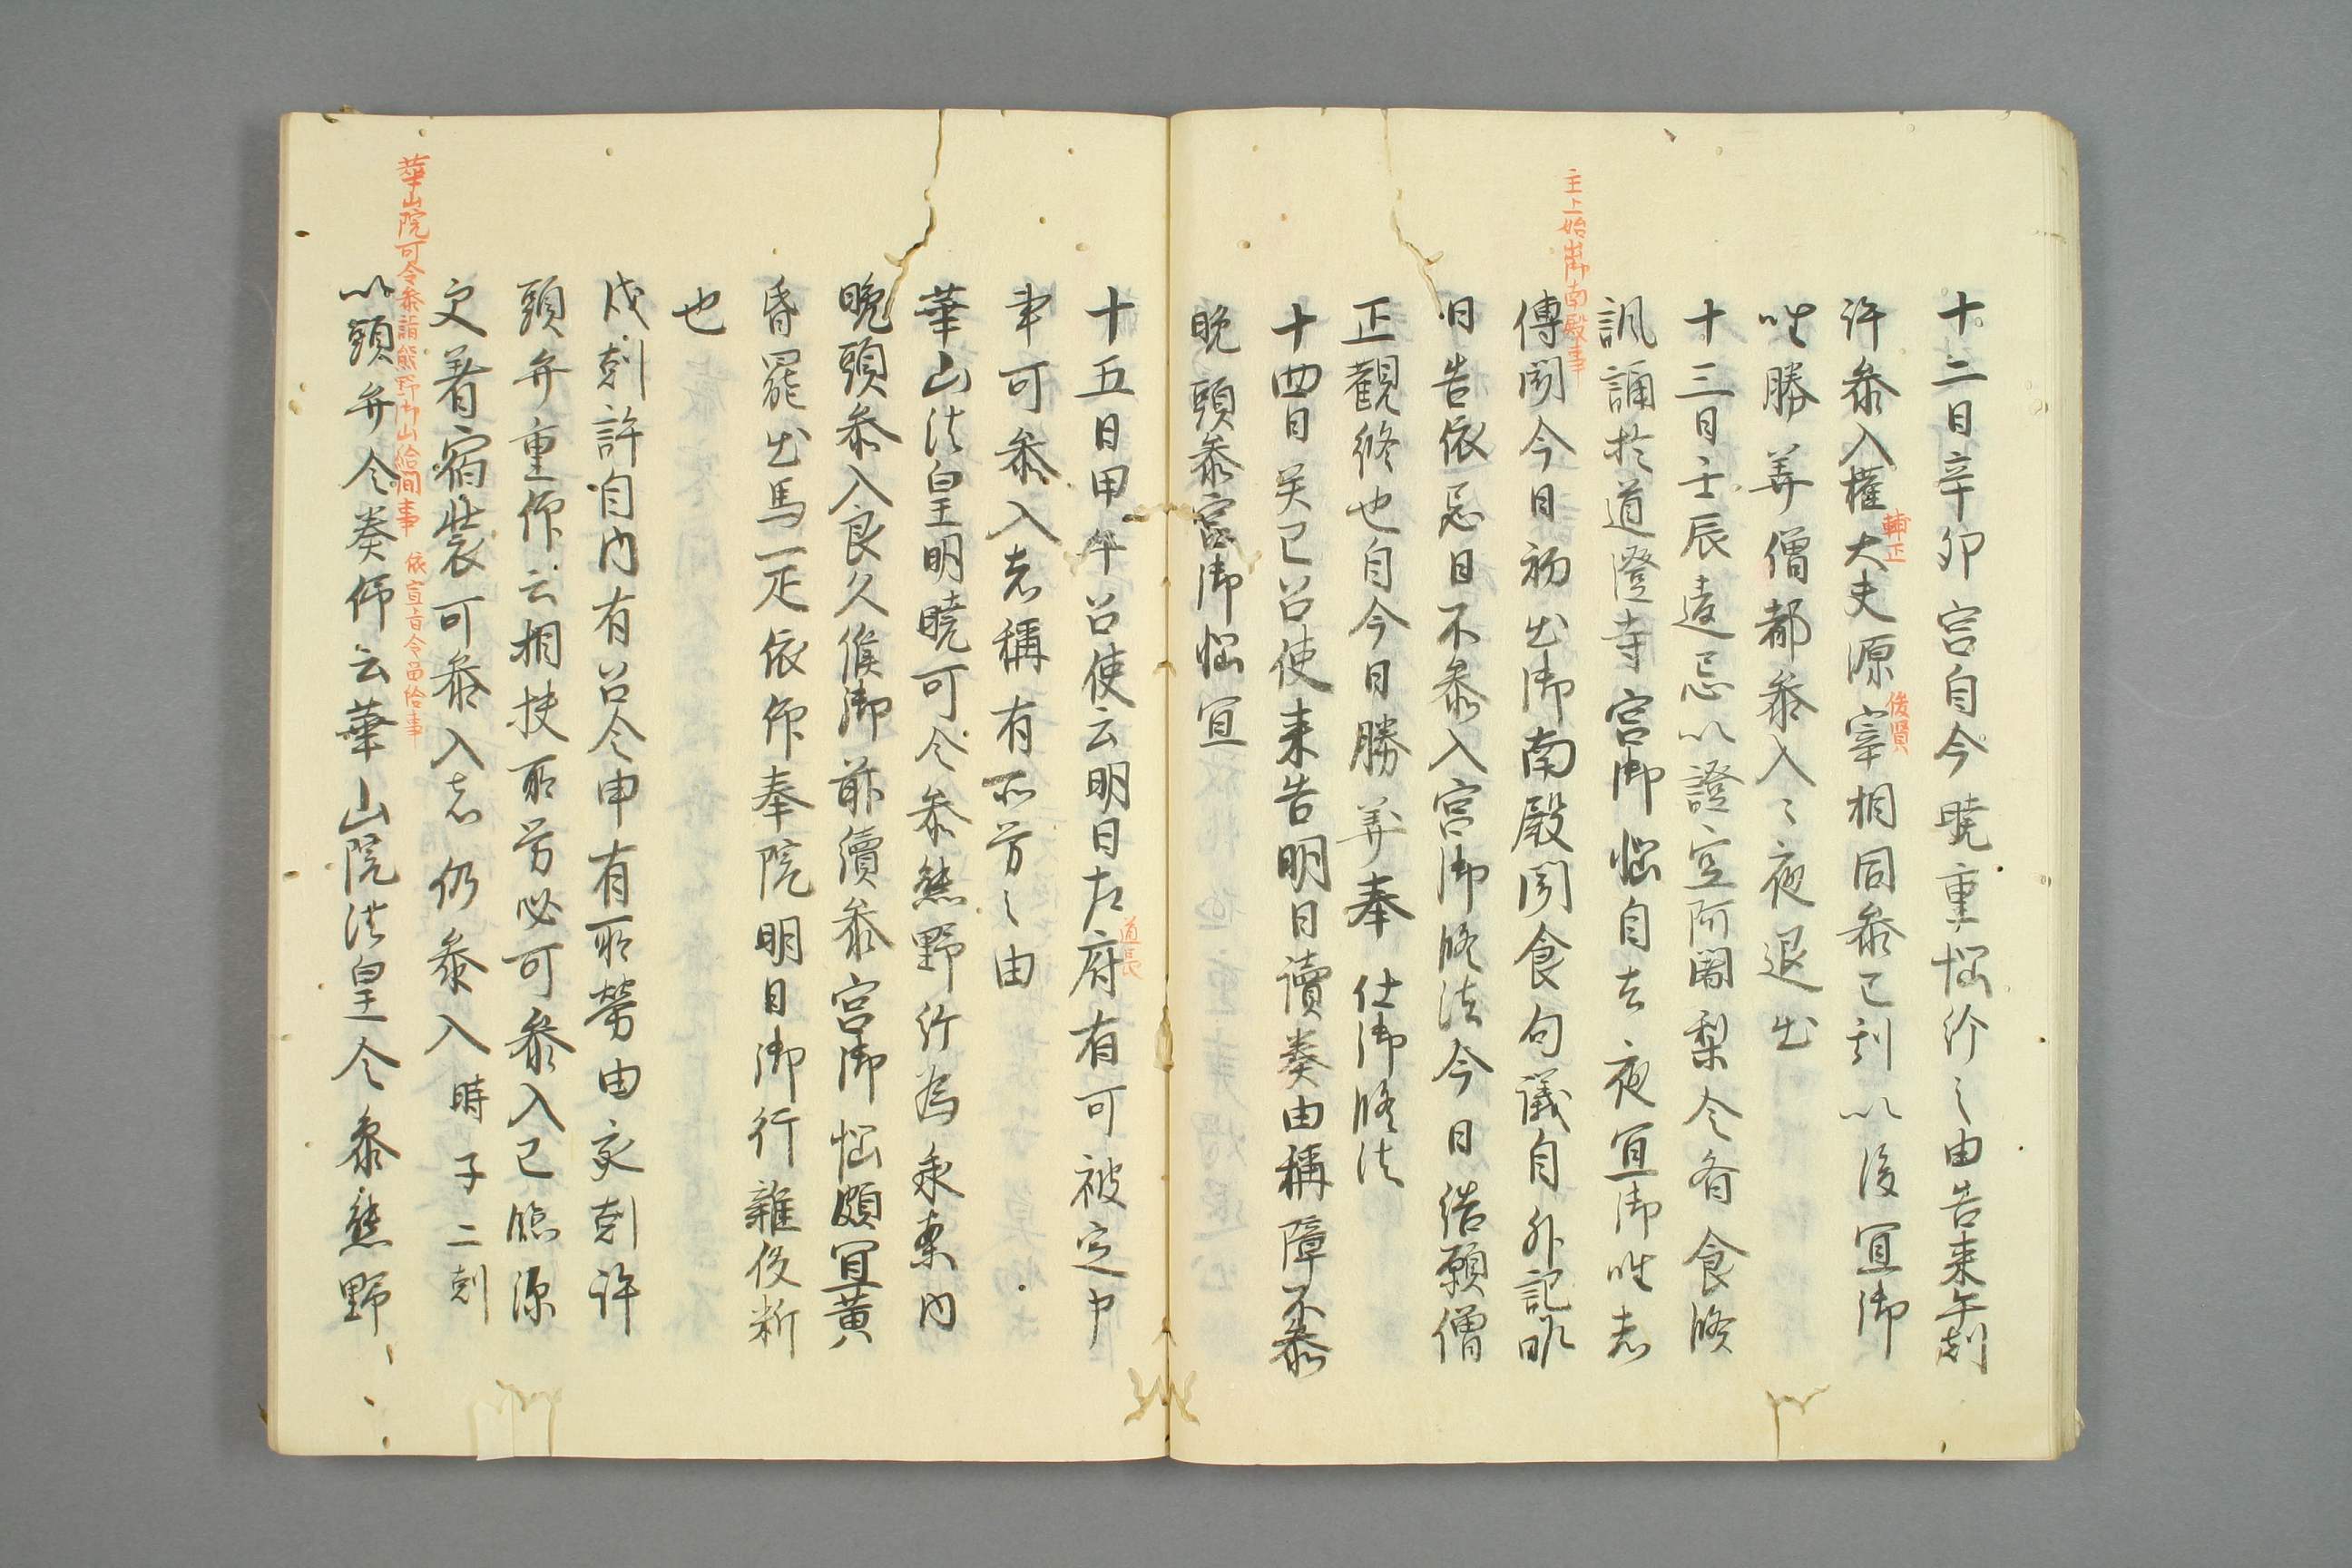 十二日辛卯宮自今暁重悩給之由告来午剋
許参入権大夫源宰相同参巳剋以後宜御
輔正
俊賢
唯勝算僧都参入々夜退出
十三日壬辰遠忌以證空阿闍梨令肴食修
諷誦於道澄寺宮御悩自去夜宜御唯者
主上始出御南殿事
傳聞今日初出御南殿聞食旬議自外記昨
日告依忌日不参入宮御修法今日結願僧
正観修也自今日勝算奉仕御修法
十四日癸巳召使来告明日讀奏由稱障不参
晩頭参宮御悩宜
十五日甲午召使云明日左府有可被定申
道長
事可参入者稱有所労之由
華山法皇明暁可令参熊野給為承案内
晩頭参入良久候御前續参宮御悩頗宜黄
昏罷出馬一疋依仰奉院明日御行雜役料
也
戌剋許自内有召令申有所勞由亥剋許
頭弁重仰云相扶所労必可参入已臨深
更着宿装可参入者仍参入時子二剋
華山院可令参詣熊野御山給間事 依宣旨令留給事
以頭弁令奏仰云華山院法皇令参熊野